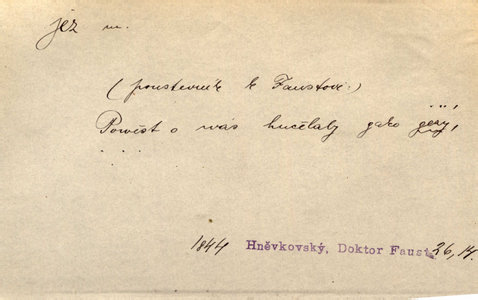 jez m.
(poustevník k Faustovi:)
Powěst o wás hučelaby gako gezy,
. . . .
1844 Hněvkovský, Doktor Faust 26, 14.